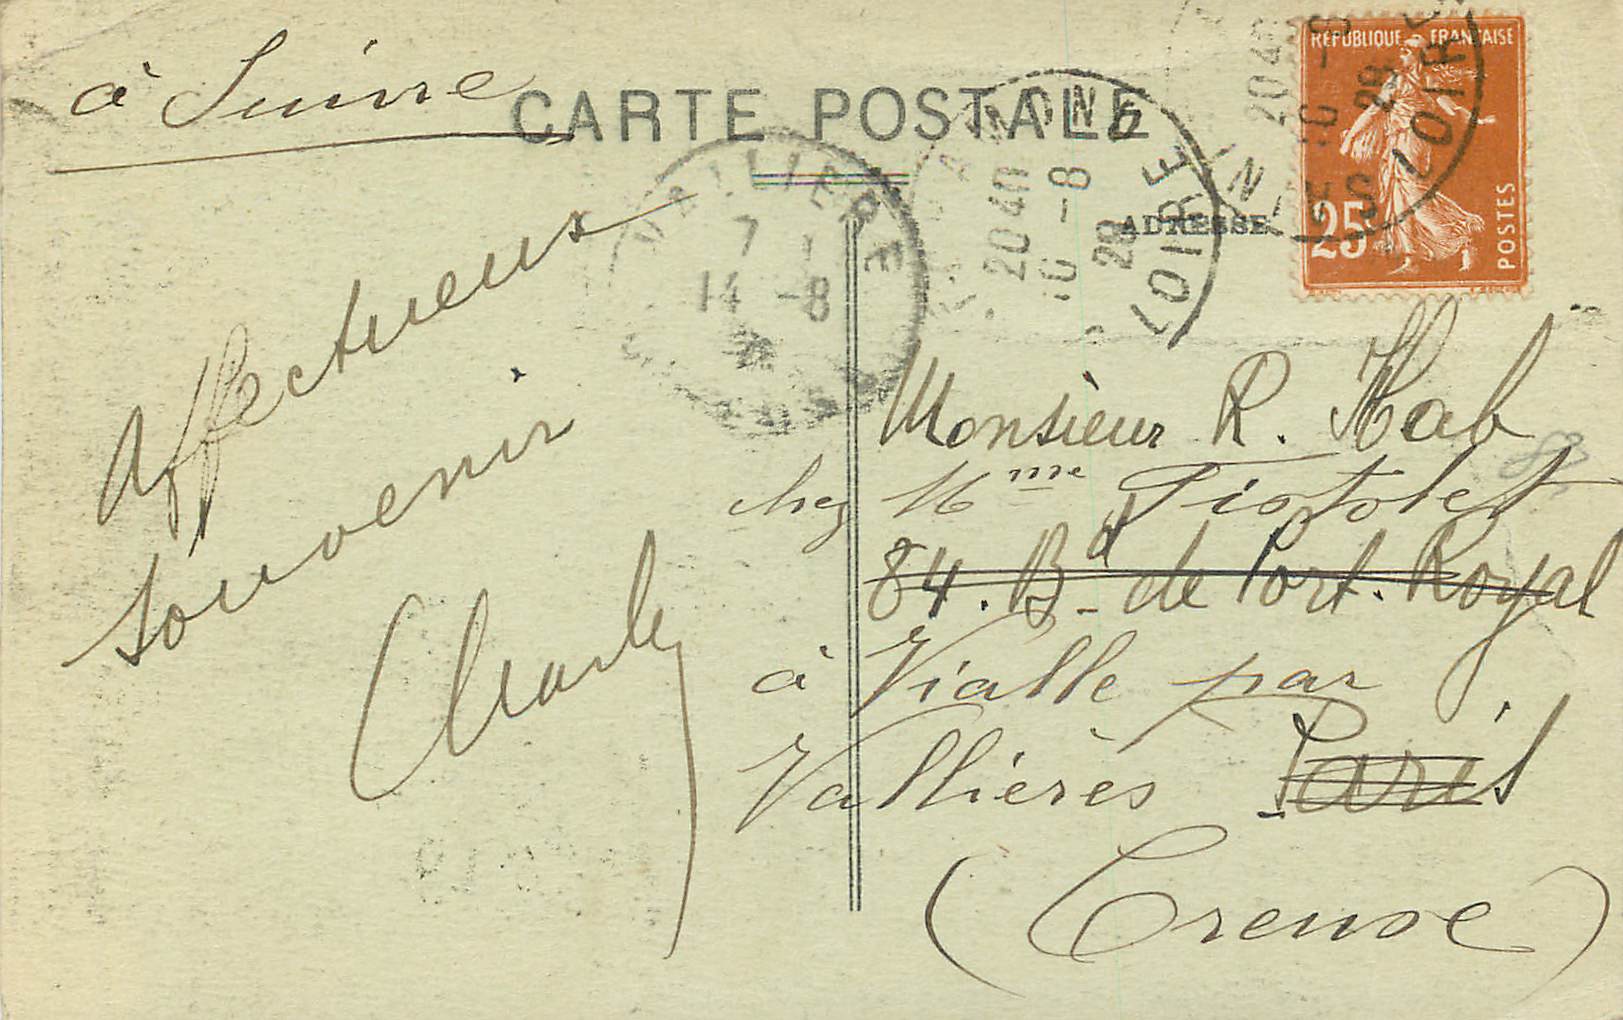 à Suivre
CARTE POSTALE
ADRESSE
RÉPUBLIQUE FRANÇAISE
25
POSTES
VALLIERE
7
14 -8
ST CHAMOND
2040
10 -8
28
LOIRE
2040
10 -8
28
LOIRE
Affectueux
souvenir
Charley
Monsieur R. Hab
chez Mme Pistolet
84. Bd de Port. Royal
à Vialle par
Vallières Paris
(Creuse)